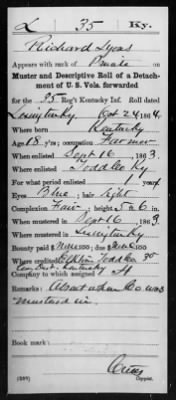 L 35 Ky.
Richard Lyons
Appears with rank of Private on
Muster and Descriptive Roll of a Detach-
ment of U. S. Vols. forwarded
for the 35 Reg't Kentucky Inf. Roll dated
Oct 24, 1864.
Where born Kentucky
Age 18 y'rs; occupation Farmer
When enlisted Sept 16, 1863.
Where enlisted Todd Co Ky
For what period enlisted 1 years.
Eyes Blue; hair Light
Complexion Fair; height 5 ft. 6 in.
When mustered in Sept 16, 1863.
Where mustered in
Bounty paid $ 100; due $ 100
Where credited
Kentucky
Company
Remarks: About when Co was
mustered in.
Book mark:
(339) Copyist.